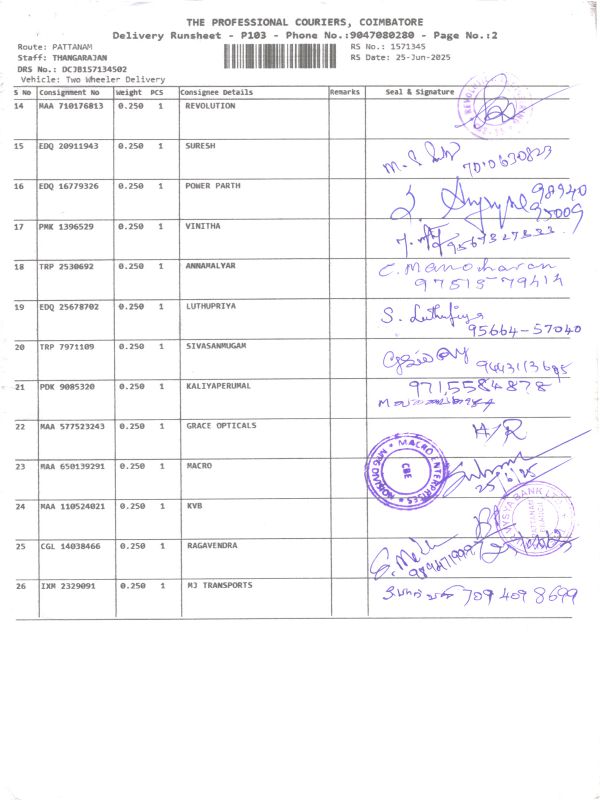 THE PROFESSIONAL COURIERS, COIMBATORE
Delivery Runsheet - P103 - Phone No.:9047080280 - Page No.:2
Route: PATTANAM
RS No.: 1571345
Staff: THANGARAJAN
RS Date: 25-Jun-2025
DRS No.: DCJB157134502
Vehicle: Two Wheeler Delivery
S No Consignment No Weight PCS Consignee Details Remarks Seal & Signature
14 MAA 710176813 0.250 1 REVOLUTION
15 EDQ 20911943 0.250 1 SURESH 7010630823
16 EDQ 16779326 0.250 1 POWER PARTH 98940
95009
17 PMK 1396529 0.250 1 VINITHA
18 TRP 2530692 0.250 1 ANNAMALYAR C. Manoharan
97515-79414
19 EDQ 25678702 0.250 1 LUTHUPRIYA S. Luthufiya
95664-57040
20 TRP 7971109 0.250 1 SIVASANMUGAM
21 PDK 9085320 0.250 1 KALIYAPERUMAL 9715584878
22 MAA 577523243 0.250 1 GRACE OPTICALS H/R
23 MAA 650139291 0.250 1 MACRO MACRO ENTERPRISES CBE
25/6/25
24 MAA 110524021 0.250 1 KVB VYSYA BANK
25 CGL 14038466 0.250 1 RAGAVENDRA
26 IXM 2329091 0.250 1 MJ TRANSPORTS 709 409 8699